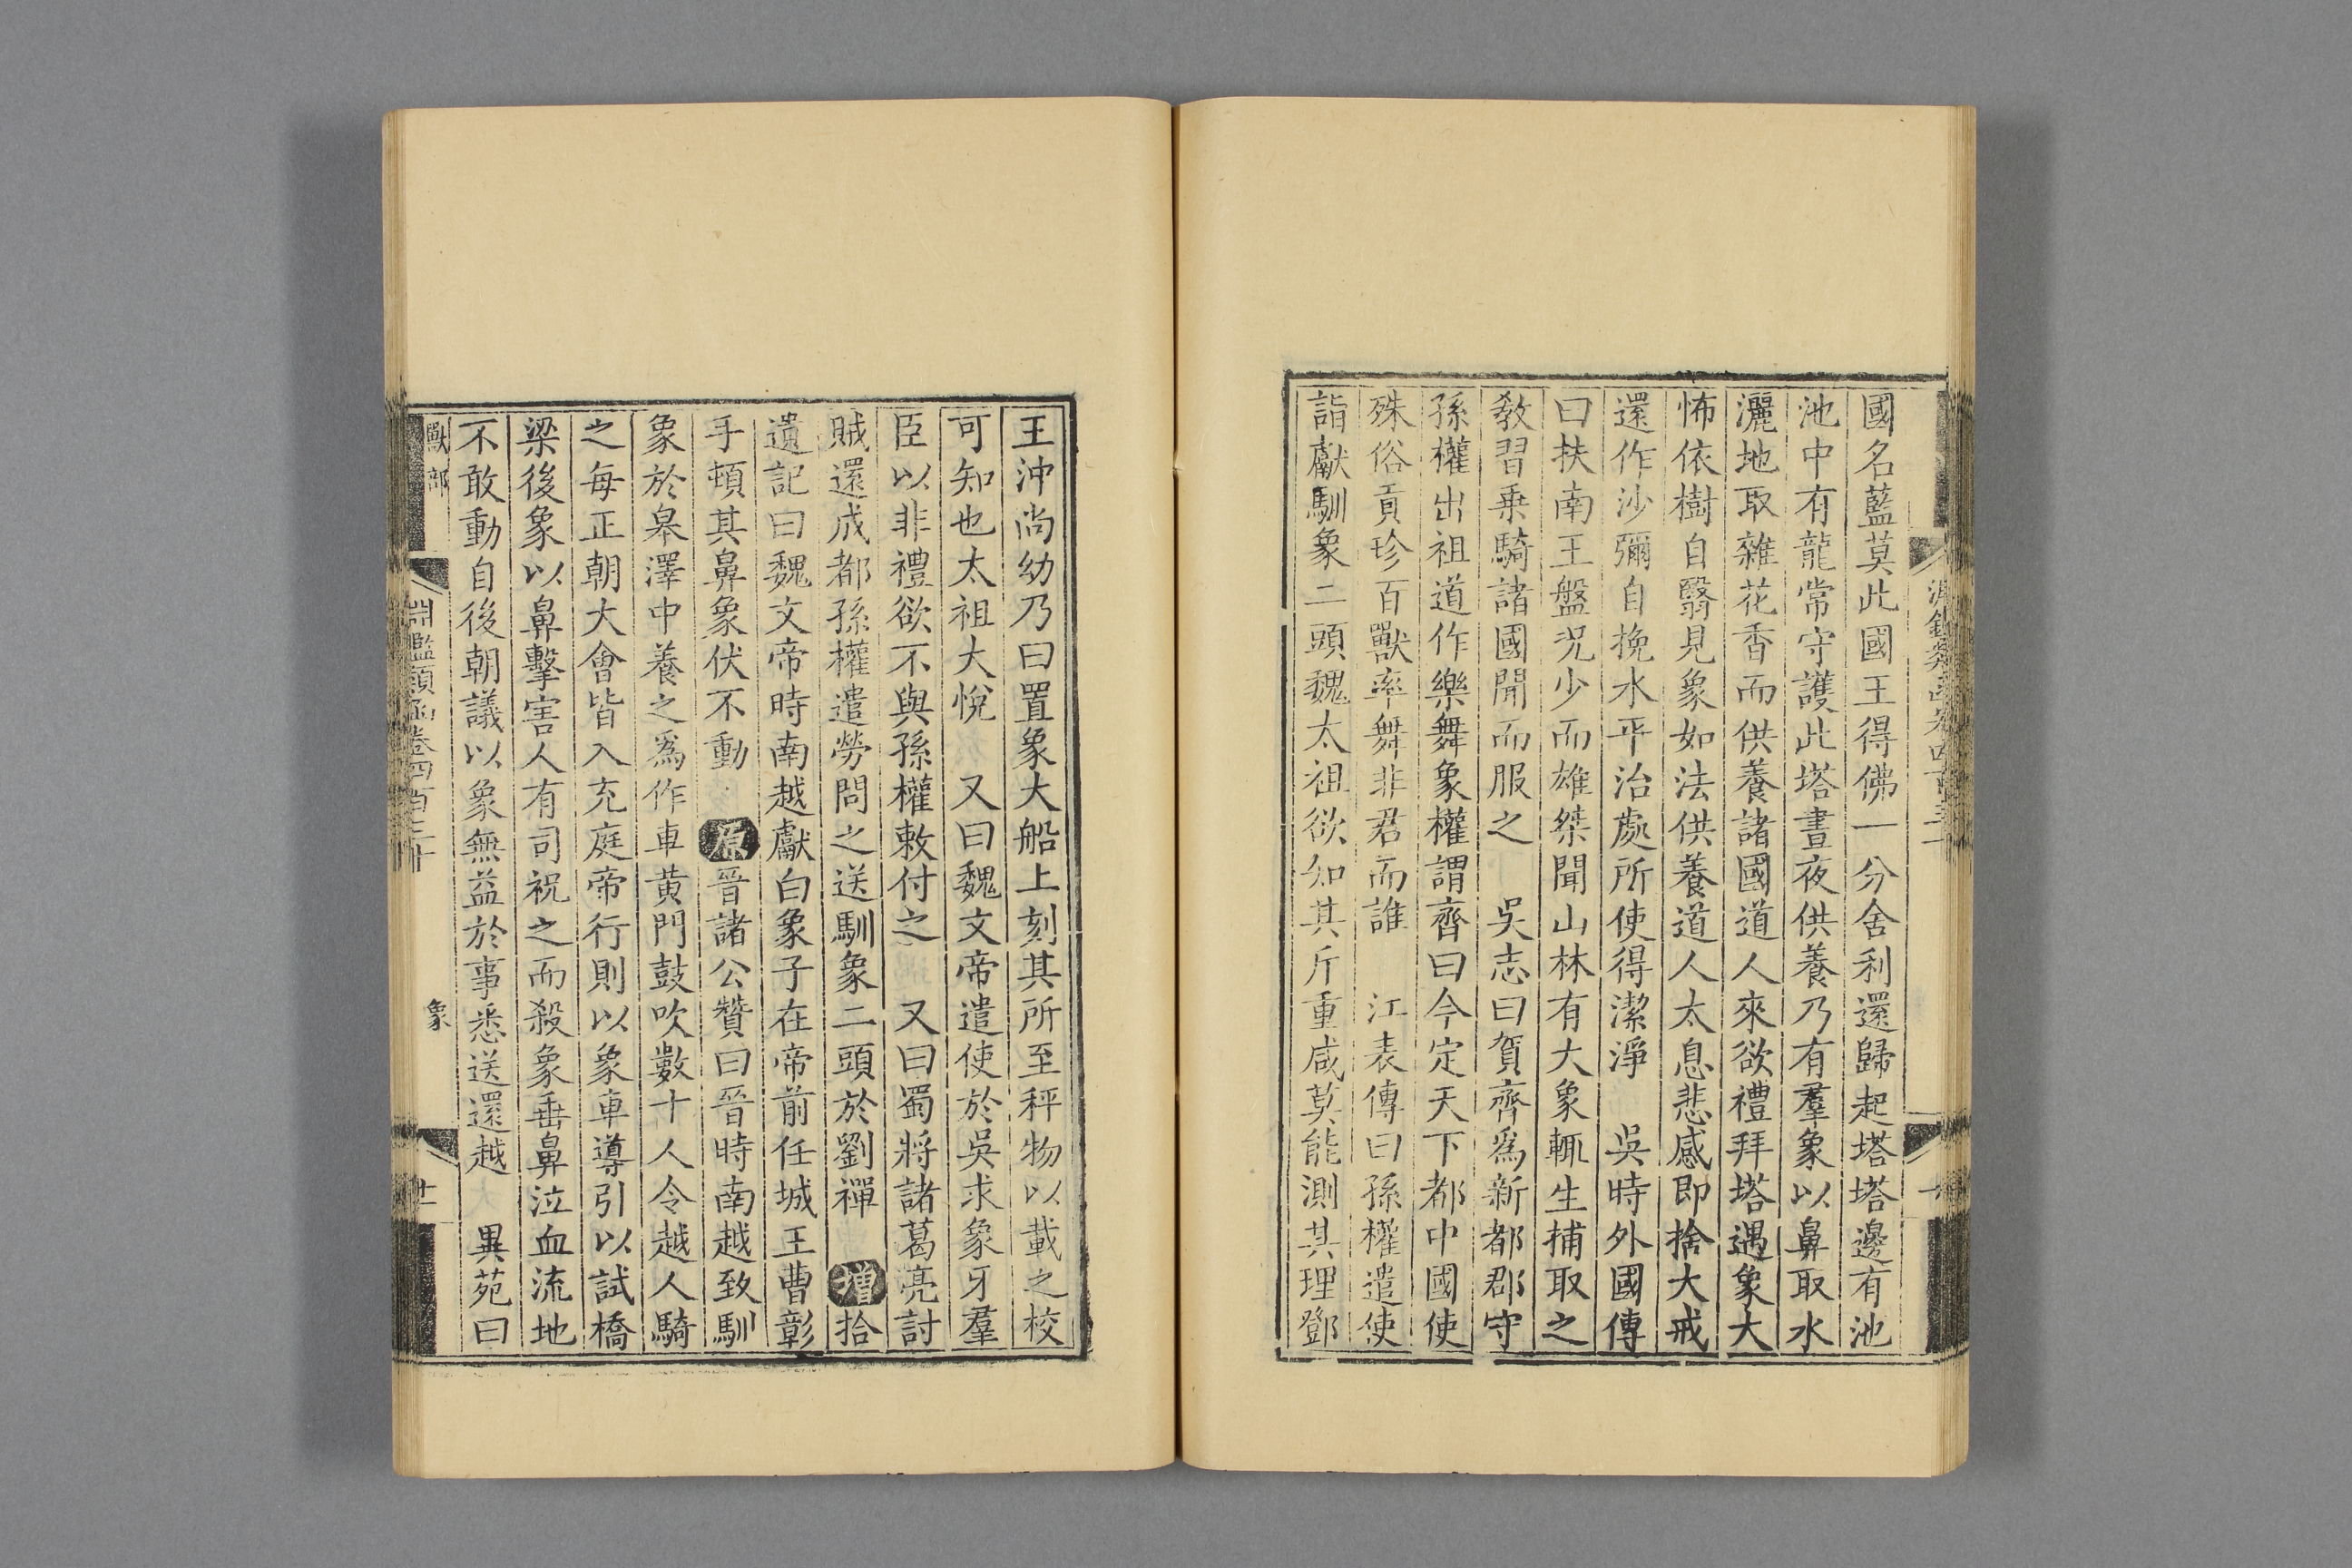 國名藍莫此國王得佛一分舍利還歸起塔塔邊有池
池中有龍常守護此塔晝夜供養乃有羣象以鼻取水
灑地取雜花香而供養諸國道人來欲禮拜塔遇象大
怖依樹自翳見象如法供養道人太息悲感即捨大戒
還作沙彌自挽水平治處所使得潔淨　吳時外國傳
曰扶南王盤況少而雄桀聞山林有大象輒生捕取之
教習乗騎諸國聞而服之　吳志曰賀齊爲新都郡守
孫權出祖道作樂舞象權謂齊曰今定天下都中國使
殊俗貢珍百獸率舞非君而誰　江表傳曰孫權遣使
詣獻馴象二頭魏太祖欲知其斤重咸莫能測其理鄧
王沖尚幼乃曰置象大船上刻其所至秤物以載之校
可知也太祖大悅　又曰魏文帝遣使於吳求象牙羣
臣以非禮欲不與孫權敕付之　又曰蜀將諸葛亮討
賊還成都孫權遣勞問之送馴象二頭於劉禪　增拾
遺記曰魏文帝時南越獻白象子在帝前任城王曹彰
手頓其鼻象伏不動　原晉諸公贊曰晉時南越致馴
象於皋澤中養之爲作車黃門鼓吹數十人令越人騎
之每正朝大會皆入充庭帝行則以象車導引以試橋
梁後象以鼻擊害人有司祝之而殺象垂鼻泣血流地
不敢動自後朝議以象無益於事悉送還越　異苑曰
獸部　淵鑑類函卷四百三十　象